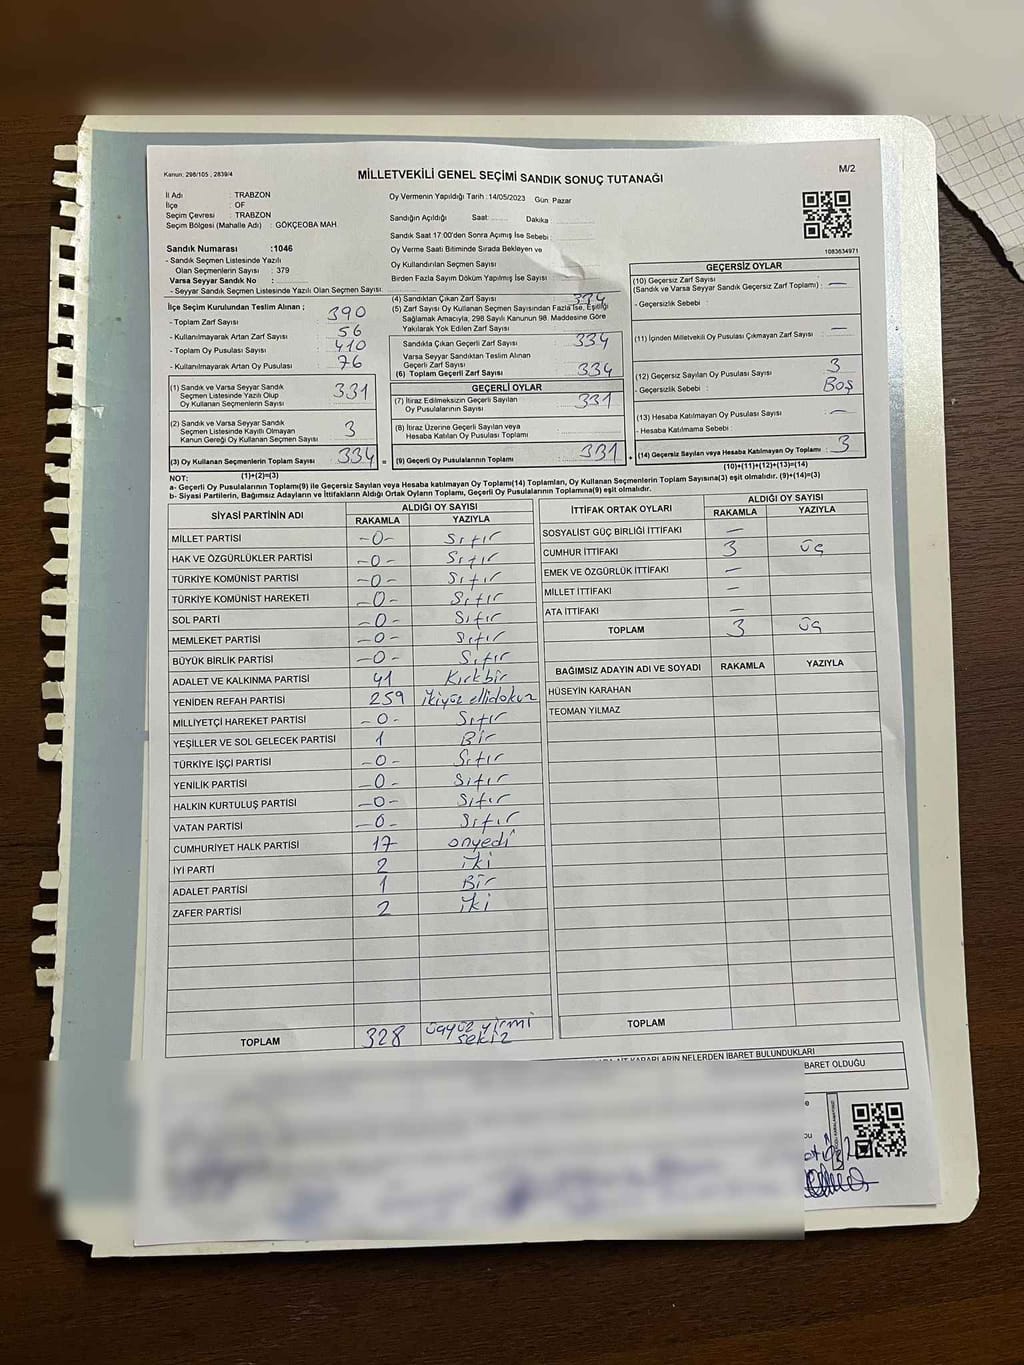 Kanun: 298/105 , 2839/4
MİLLETVEKİLİ GENEL SEÇİMİ SANDIK SONUÇ TUTANAĞI
M/2
İl Adı : TRABZON
İlçe : OF
Seçim Çevresi : TRABZON
Seçim Bölgesi (Mahalle Adı) : GÖKÇEOBA MAH
Sandık Numarası :1046
- Sandık Seçmen Listesinde Yazılı
Olan Seçmenlerin Sayısı : 379
Varsa Seyyar Sandık No :
- Seyyar Sandık Seçmen Listesinde Yazılı Olan Seçmen Sayısı:
Oy Vermenin Yapıldığı Tarih :14/05/2023 Gün: Pazar
Sandığın Açıldığı Saat: Dakika
Sandık Saat 17:00'den Sonra Açımış İse Sebebi
Oy Verme Saati Bitiminde Sırada Bekleyen ve
Oy Kullandırılan Seçmen Sayısı
Birden Fazla Sayım Döküm Yapılmış İse Sayısı
1083634971
İlçe Seçim Kurulundan Teslim Alınan ;
- Toplam Zarf Sayısı : 390
- Kullanılmayarak Artan Zarf Sayısı : 56
- Toplam Oy Pusulası Sayısı : 410
- Kullanılmayarak Artan Oy Pusulası : 76
(1) Sandık ve Varsa Seyyar Sandık
Seçmen Listesinde Yazılı Olup
Oy Kullanan Seçmenlerin Sayısı 331
(2) Sandık ve Varsa Seyyar Sandık
Seçmen Listesinde Kayıtlı Olmayan
Kanun Gereği Oy Kullanan Seçmen Sayısı 3
(3) Oy Kullanan Seçmenlerin Toplam Sayısı 334
(1)+(2)=(3)
(4) Sandıktan Çıkan Zarf Sayısı 334
(5) Zarf Sayısı Oy Kullanan Seçmen Sayısından Fazla İse, Eşitliği
Sağlamak Amacıyla, 298 Sayılı Kanunun 98. Maddesine Göre
Yakılarak Yok Edilen Zarf Sayısı
Sandıkla Çıkan Geçerli Zarf Sayısı 334
Varsa Seyyar Sandıktan Teslim Alınan
Geçerli Zarf Sayısı
(6) Toplam Geçerli Zarf Sayısı 334
GEÇERLİ OYLAR
(7) İtiraz Edilmeksizin Geçerli Sayılan
Oy Pusulalarının Sayısı 331
(8) İtiraz Üzerine Geçerli Sayılan veya
Hesaba Katılan Oy Pusulası Toplamı
= (9) Geçerli Oy Pusulalarının Toplamı 331 +
GEÇERSİZ OYLAR
(10) Geçersiz Zarf Sayısı
(Sandık ve Varsa Seyyar Sandık Geçersiz Zarf Toplamı) : —
- Geçersizlik Sebebi :
(11) İçinden Milletvekili Oy Pusulası Çıkmayan Zarf Sayısı : —
(12) Geçersiz Sayılan Oy Pusulası Sayısı : 3
- Geçersizlik Sebebi : Boş
(13) Hesaba Katılmayan Oy Pusulası Sayısı : —
- Hesaba Katılmama Sebebi :
(14) Geçersiz Sayılan veya Hesaba Katılmayan Oy Toplamı : 3
(10)+(11)+(12)+(13)=(14)
NOT:
a- Geçerli Oy Pusulalarının Toplamı(9) ile Geçersiz Sayılan veya Hesaba Katılmayan Oy Toplamı(14) Toplamları, Oy Kullanan Seçmenlerin Toplam Sayısına(3) eşit olmalıdır. (9)+(14)=(3)
b- Siyasi Partilerin, Bağımsız Adayların ve İttifakların Aldığı Ortak Oyların Toplamı, Geçerli Oy Pusulalarının Toplamına(9) eşit olmalıdır.
SİYASİ PARTİNİN ADI ALDIĞI OY SAYISI
RAKAMLA YAZIYLA
MİLLET PARTİSİ -0- Sıfır
HAK VE ÖZGÜRLÜKLER PARTİSİ -0- Sıfır
TÜRKİYE KOMÜNİST PARTİSİ -0- Sıfır
TÜRKİYE KOMÜNİST HAREKETİ -0- Sıfır
SOL PARTİ -0- Sıfır
MEMLEKET PARTİSİ -0- Sıfır
BÜYÜK BİRLİK PARTİSİ -0- Sıfır
ADALET VE KALKINMA PARTİSİ 41 Kırkbir
YENİDEN REFAH PARTİSİ 259 ikiyüz ellidokuz
MİLLİYETÇİ HAREKET PARTİSİ -0- Sıfır
YEŞİLLER VE SOL GELECEK PARTİSİ 1 Bir
TÜRKİYE İŞÇİ PARTİSİ -0- Sıfır
YENİLİK PARTİSİ -0- Sıfır
HALKIN KURTULUŞ PARTİSİ -0- Sıfır
VATAN PARTİSİ -0- Sıfır
CUMHURİYET HALK PARTİSİ 17 onyedi
İYİ PARTİ 2 iki
ADALET PARTİSİ 1 Bir
ZAFER PARTİSİ 2 iki
TOPLAM 328 üçyüz yirmi
sekiz
İTTİFAK ORTAK OYLARI ALDIĞI OY SAYISI
RAKAMLA YAZIYLA
SOSYALİST GÜÇ BİRLİĞİ İTTİFAKI —
CUMHUR İTTİFAKI 3 üç
EMEK VE ÖZGÜRLÜK İTTİFAKI —
MİLLET İTTİFAKI —
ATA İTTİFAKI —
TOPLAM 3 üç
BAĞIMSIZ ADAYIN ADI VE SOYADI RAKAMLA YAZIYLA
HÜSEYİN KARAHAN
TEOMAN YILMAZ
TOPLAM
KARARLARIN NELERDEN İBARET BULUNDUKLARI
BARET OLDUĞU